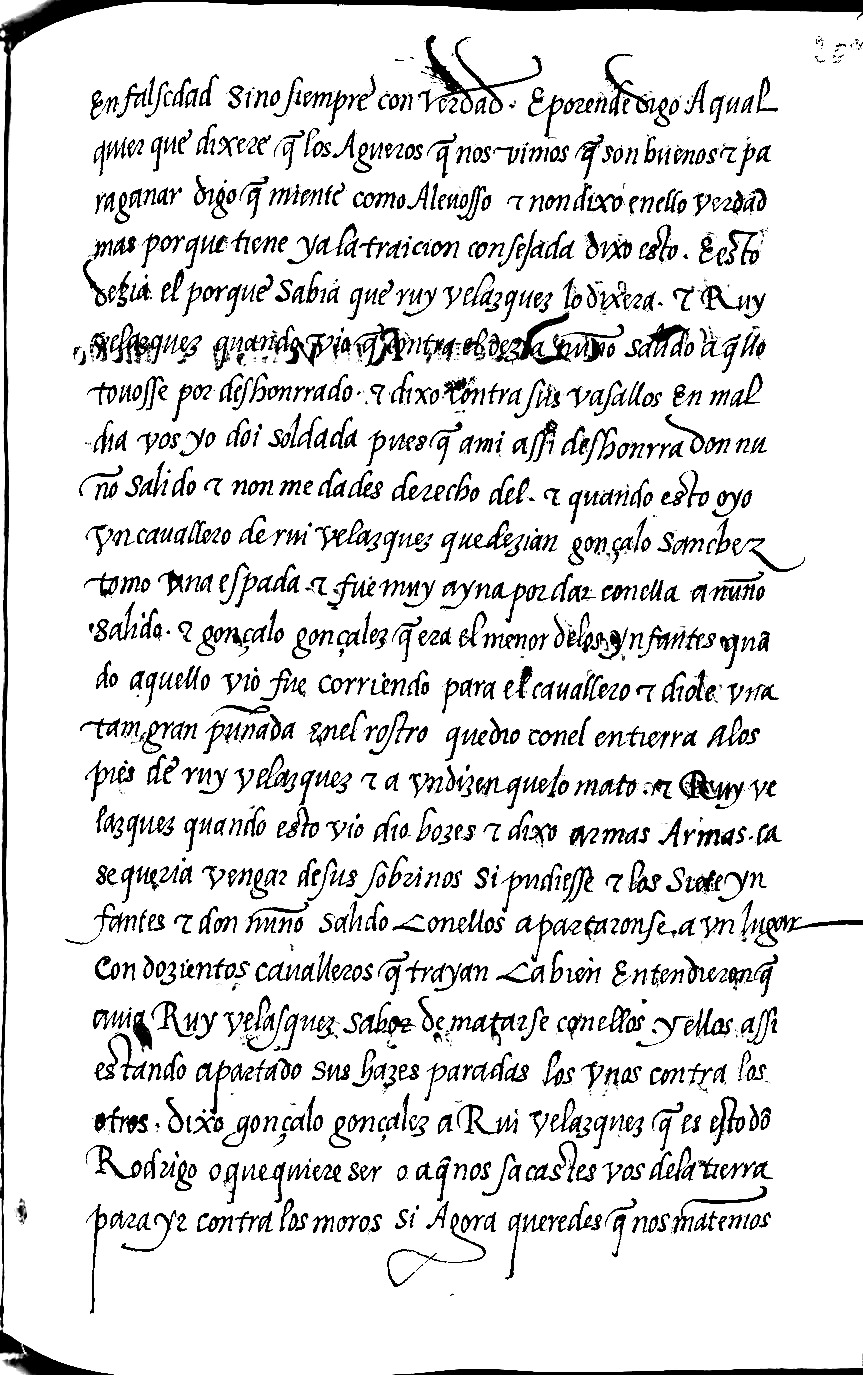 en falsedad Sino siempre con verdad. E porende digo A qual
quier que dixere q̄ los Agueros q̄ nos vimos q̄ son buenos τ pa
ra ganar digo q̄ miente como Alevosso τ non dixo en ello verdad
mas porque tiene ya la traicion consejada dixo esto. E esto
dezia el porque Sabia que ruy velazquez lo dixera. τ Ruy
velazquez quando vio q̄ contra el dezia nuño salido aq̄llo
touosse por deshonrrado. τ dixo contra sus vasallos En mal
dia vos yo doi soldada pues q̄ ami assi deshonrra don nu
ño Salido τ non me dades derecho del. τ quando esto oyo
vn cavallero de rui velazquez que dezian gonçalo Sanchez
tomo vna espada τ fue muy ayna por dar con ella a nuño
Salido. τ gonçalo gonçalez q̄ era el menor delos ynfantes quā
do aquello vio fue corriendo para el cavallero τ diole vna
tam gran puñada en el rostro que dio con el en tierra A los
pies de ruy velazquez τ a vn dizen que lo mato. τ Ruy ve
lazquez quando esto vio dio bozes τ dixo armas Armas. ca
se queria vengar de sus sobrinos Si pudiesse τ los Siete yn
fantes τ don nuño Salido Con ellos apartaronse a vn lugar
Con dozientos cavalleros q̄ trayan Ca bien Entendieron q̄
auia Ruy velasquez Sabor de matarse con ellos. y ellos assi
estando apartado sus hazes paradas los vnos contra los
otros. dixo gonçalo gonçalez a Rui velazquez q̄ es esto dō
Rodrigo o que quiere ser o a q̄ nos sacastes vos de la tierra
para yr contra los moros Si Agora queredes q̄ nos matemos